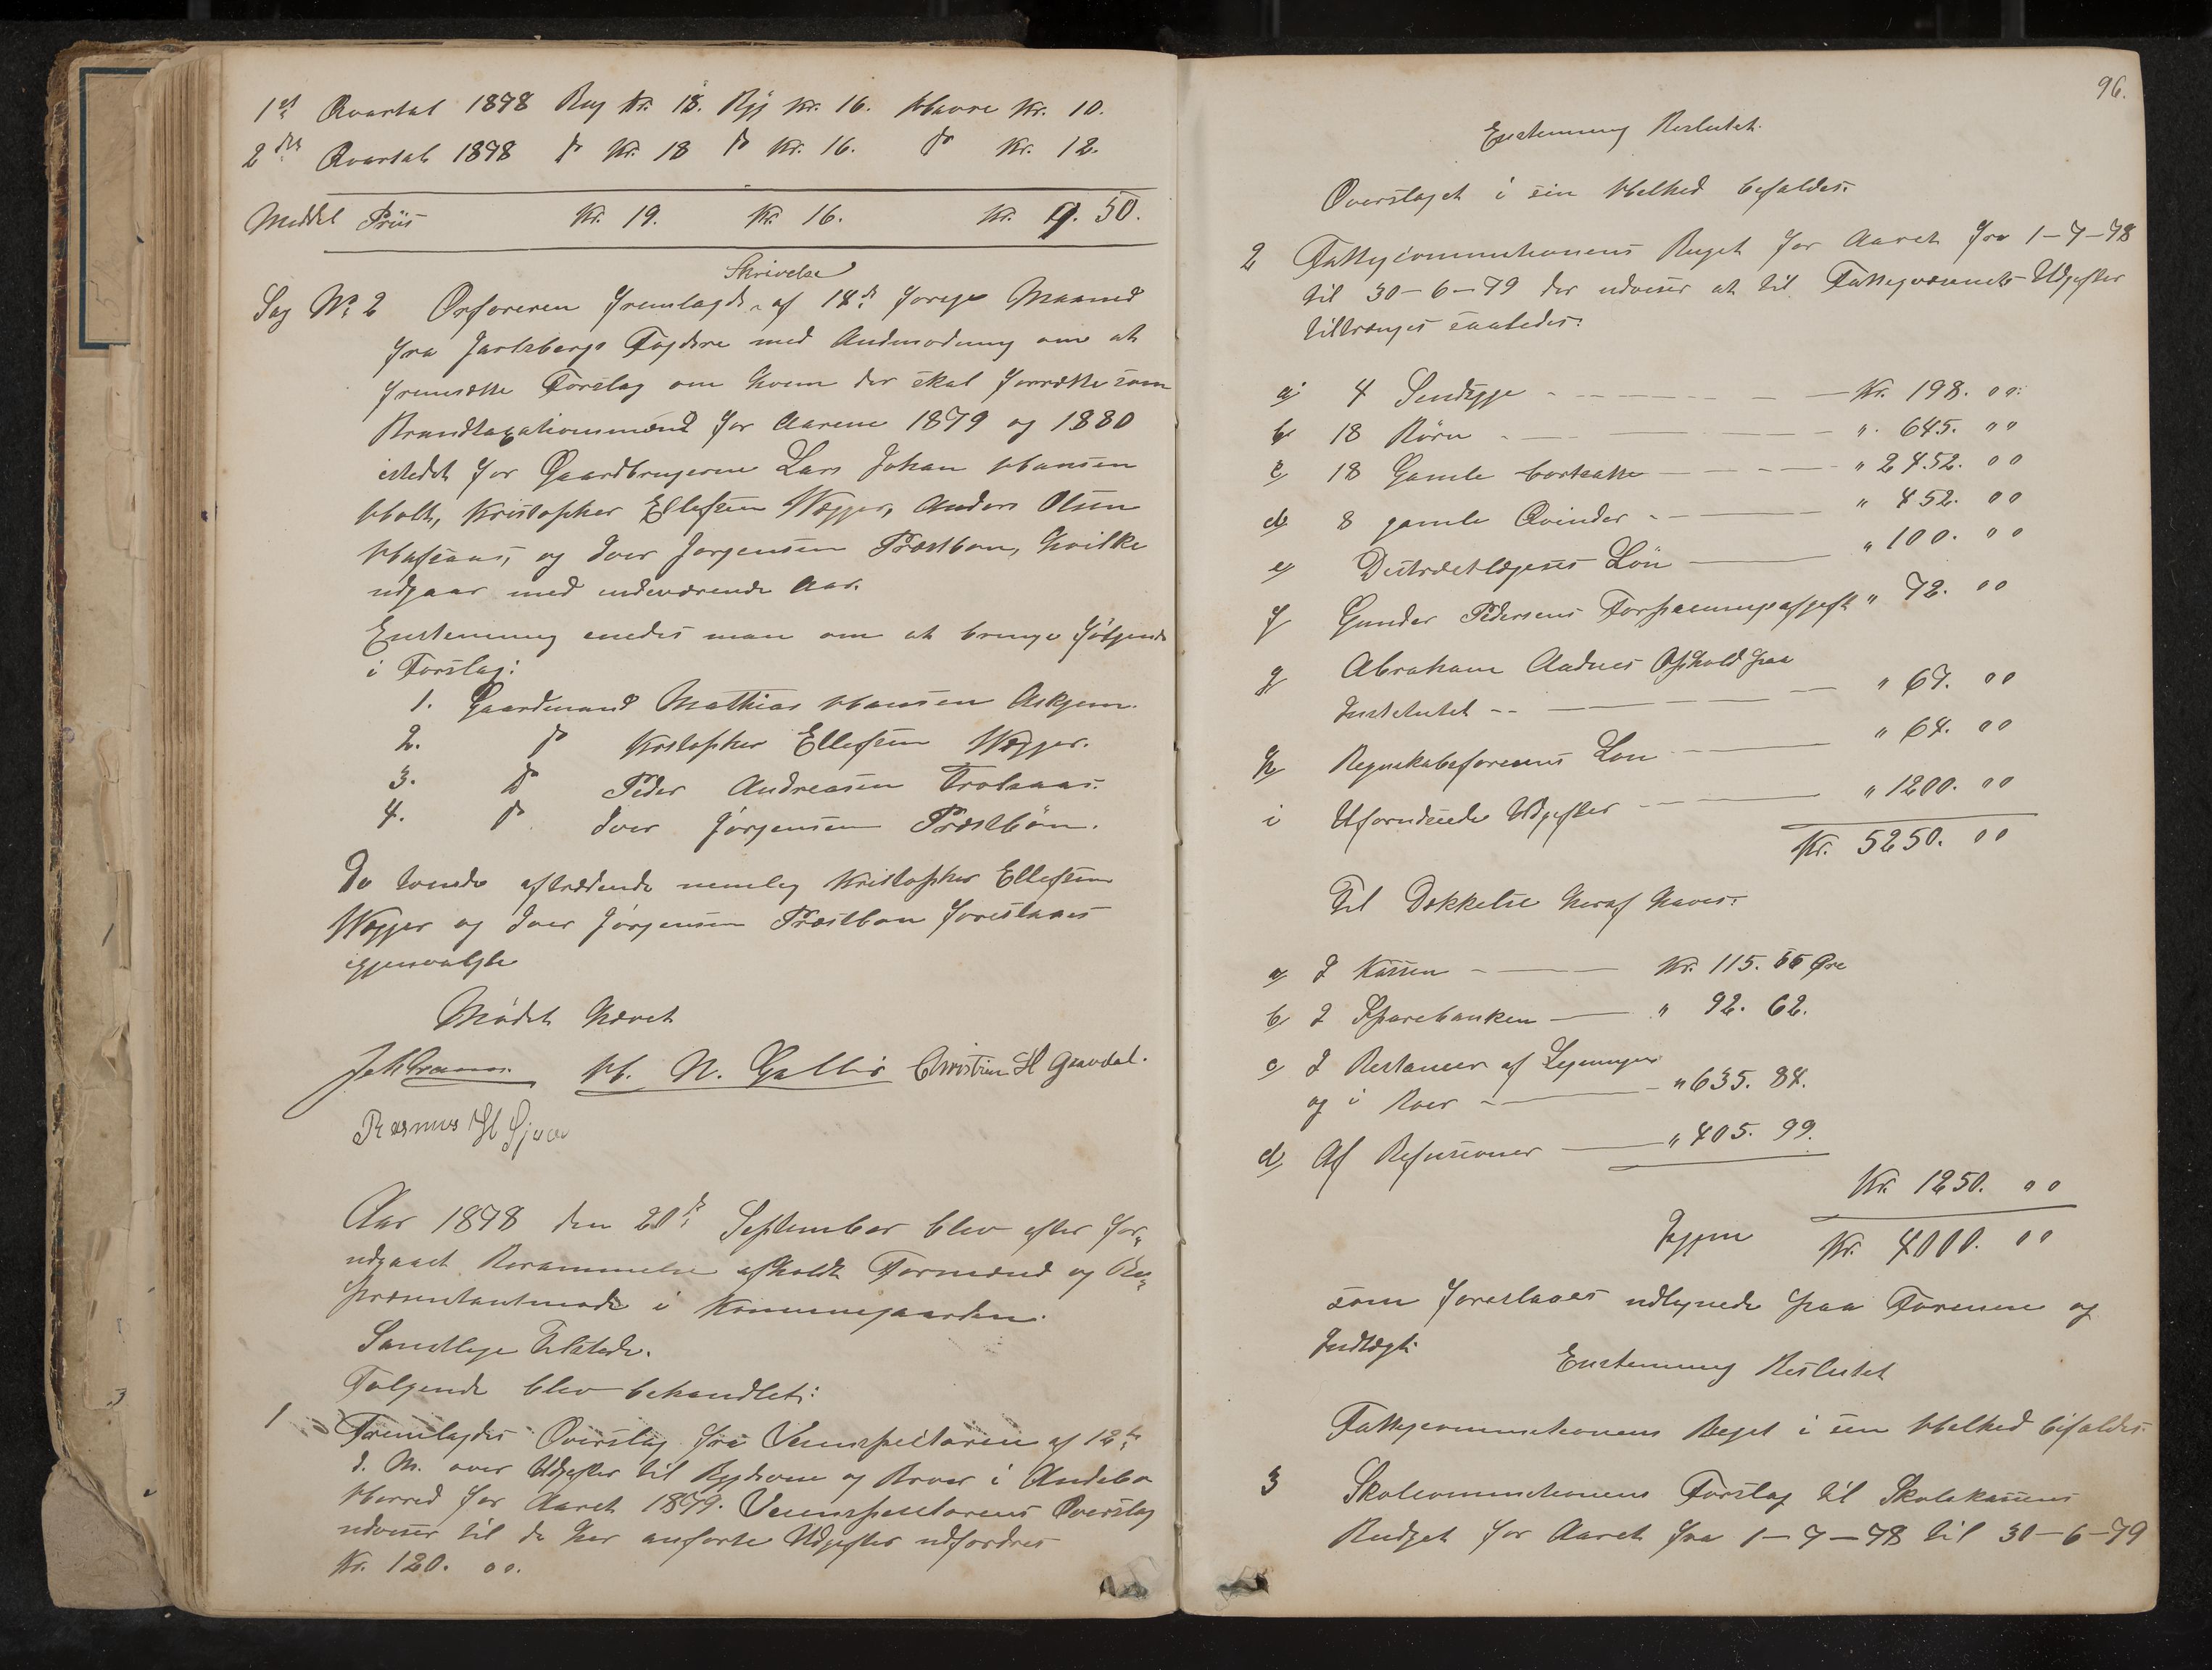 1ste Qvartal 1878 Rug Kr. 18. Byg Kr. 16. Havre Kr. 10.
2det Qvartal 1878 do Kr. 18 do Kr. 16. do Kr. 12.
Middel Priis Kr. 19. Kr. 16. Kr. 9. 50.
Skrivelse
Sag No 2 Orføreren fremlagde af 18de forrige Maaned
fra Jarlsbergs Fogderie med Andmodning om at
fremsætte Forslag om hvem der skal forrætte som
Brandtaxationsmænd for Aarene 1879 og 1880
istedet for Gaardbrugerne Lars Johan Hansen
Holt, Kristopher Ellefsen Wegger, Anders Olsen
og Iver Jørgensen Præstbøn, hvilke
udgaar med indeværende Aar.
Enstemmig enedes man om at bringe følgende
i Forslag:
1. Gaardmand Mathias Hansen Askjem.
2. do Kristopher Ellefsen Wegger.
3. do Peder Andreasen Trolsaas.
4. do Iver Jørgensen Præstbøn.
De tvende aftrædende nemlig Kristopher Ellefsen
Wegger og Iver Jørgensen Præstbøn foreslaaes
igjenvalgte
Mødet hævet
H. N. Gallis Christian H Gravdal.
Rasmus H
Aar 1878 den 20de September blev efter for-
udgaaet Berammelse afholdt Formænd og Re-
præsentantmøde i Kommunegaarden.
Samtlige Tilstede.
Følgende blev behandlet:
1 Fremlagdes Overslag fra Veiinspectøren af 12te
d. M. over Udgifter til Bygdeveie og Broer i Andebo
Herred for Aaret 1879. Veiinspectørens Overslag
udviser til de her anførte Udgifter udfordres
Kr. 120. 00.
96.
Enstemmig Besluttet.
Overslaget i sin Helhed bifaldes.
2 Fattigcommissionens Buget for Aaret fra 1-7-78
til 30-6-79 der udviser at til Fattigvæsenets Udgifter
tiltrænges saaledes:
a) 4 Sindsyge Kr. 198. 00.
b) 18 Børn " 645. 00
c) 18 Gamle bortsatte " 2452. 00
d) 8 gamle Qvinder " 452. 00
e) Districtslægens Løn " 100. 00
f) Gunder Pedersens Forpleiningsafgift " 72. 00
g) Abraham Aadnes Ophold paa
Institutet " 67. 00
h) Regnskabsførerens Løn " 64. 00
i Uforudseede Udgifter " 1200. 00
Kr. 5250. 00
Til Dækkelse heraf haves:
a) I Kassen Kr. 115. 55 Øre
b) I Sparebanken " 92. 62.
c) I Restancer af Ligningen
og i " 635. 84.
d) Af Refusioner " 405. 99.
Kr. 1250. 00
Igjen Kr. 4000. 00
som foreslaaes udlignede paa Formue og
Indtægt.
Enstemmig Besluttet
Fattigcommissionens Buget i sin Helhed bifaldes.
3 Skolecommissionens Forslag til Skolekassens
Budget for Aaret fra 1-7-78 til 30-6-79